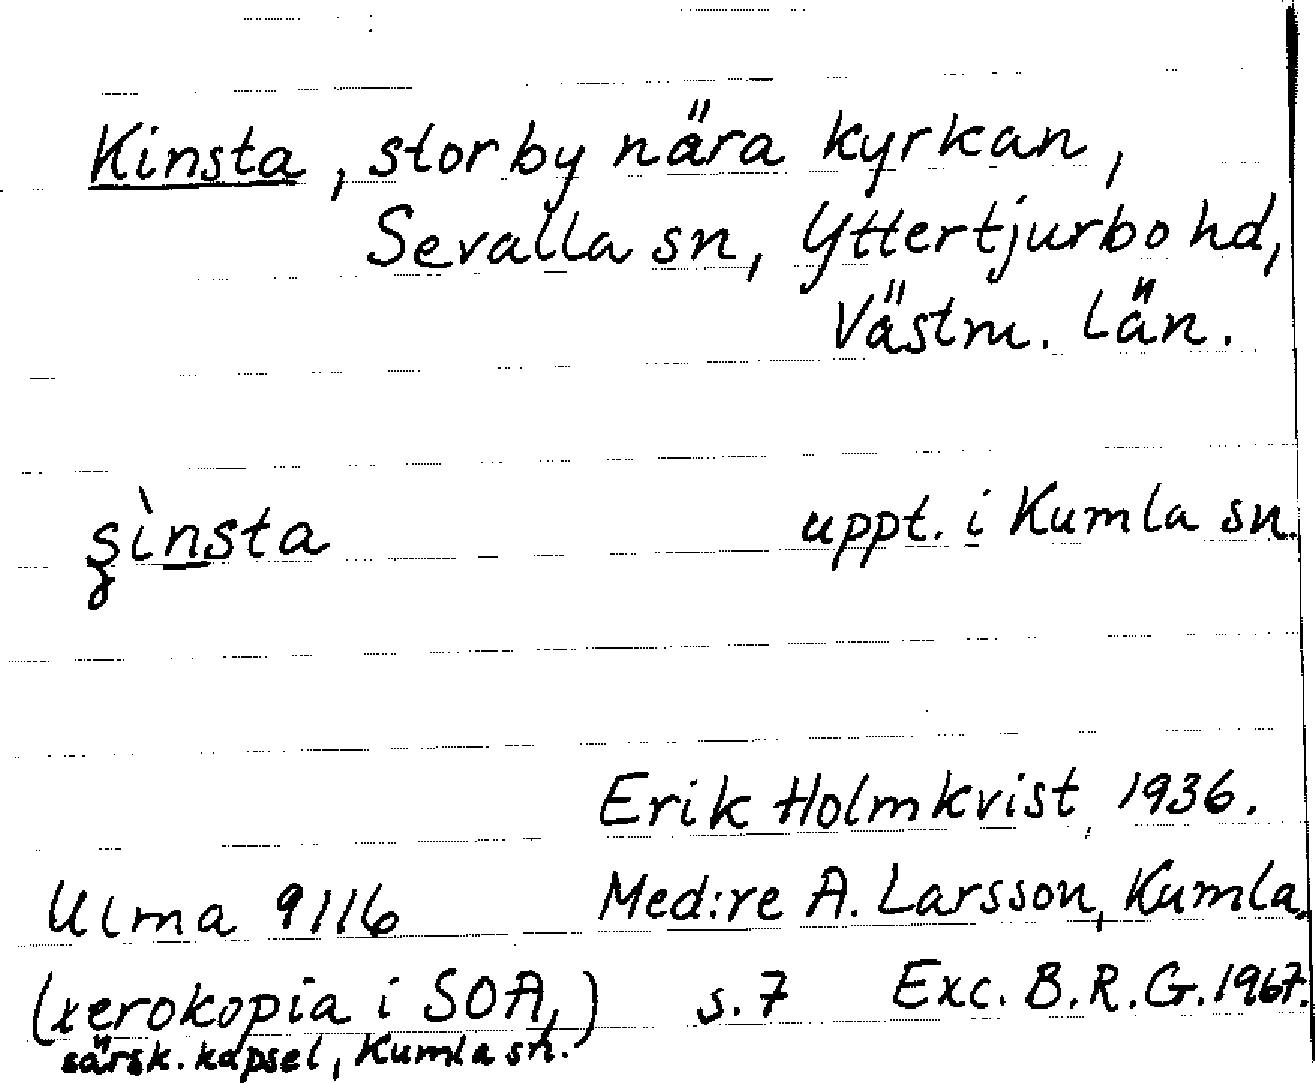 Kinsta, storby nära kyrkan,
Sevalla sn, Yttertjurbo hd,
Västm. län.
ʂìnsta uppt. i Kumla sn.
Erik Holmkvist, 1936.
Ulma 9116 Med:re A. Larsson, Kumla.
(xerokopia i SOA,) s. 7 Exc. B.R.G. 1967.
särsk. kapsel, Kumla sn.